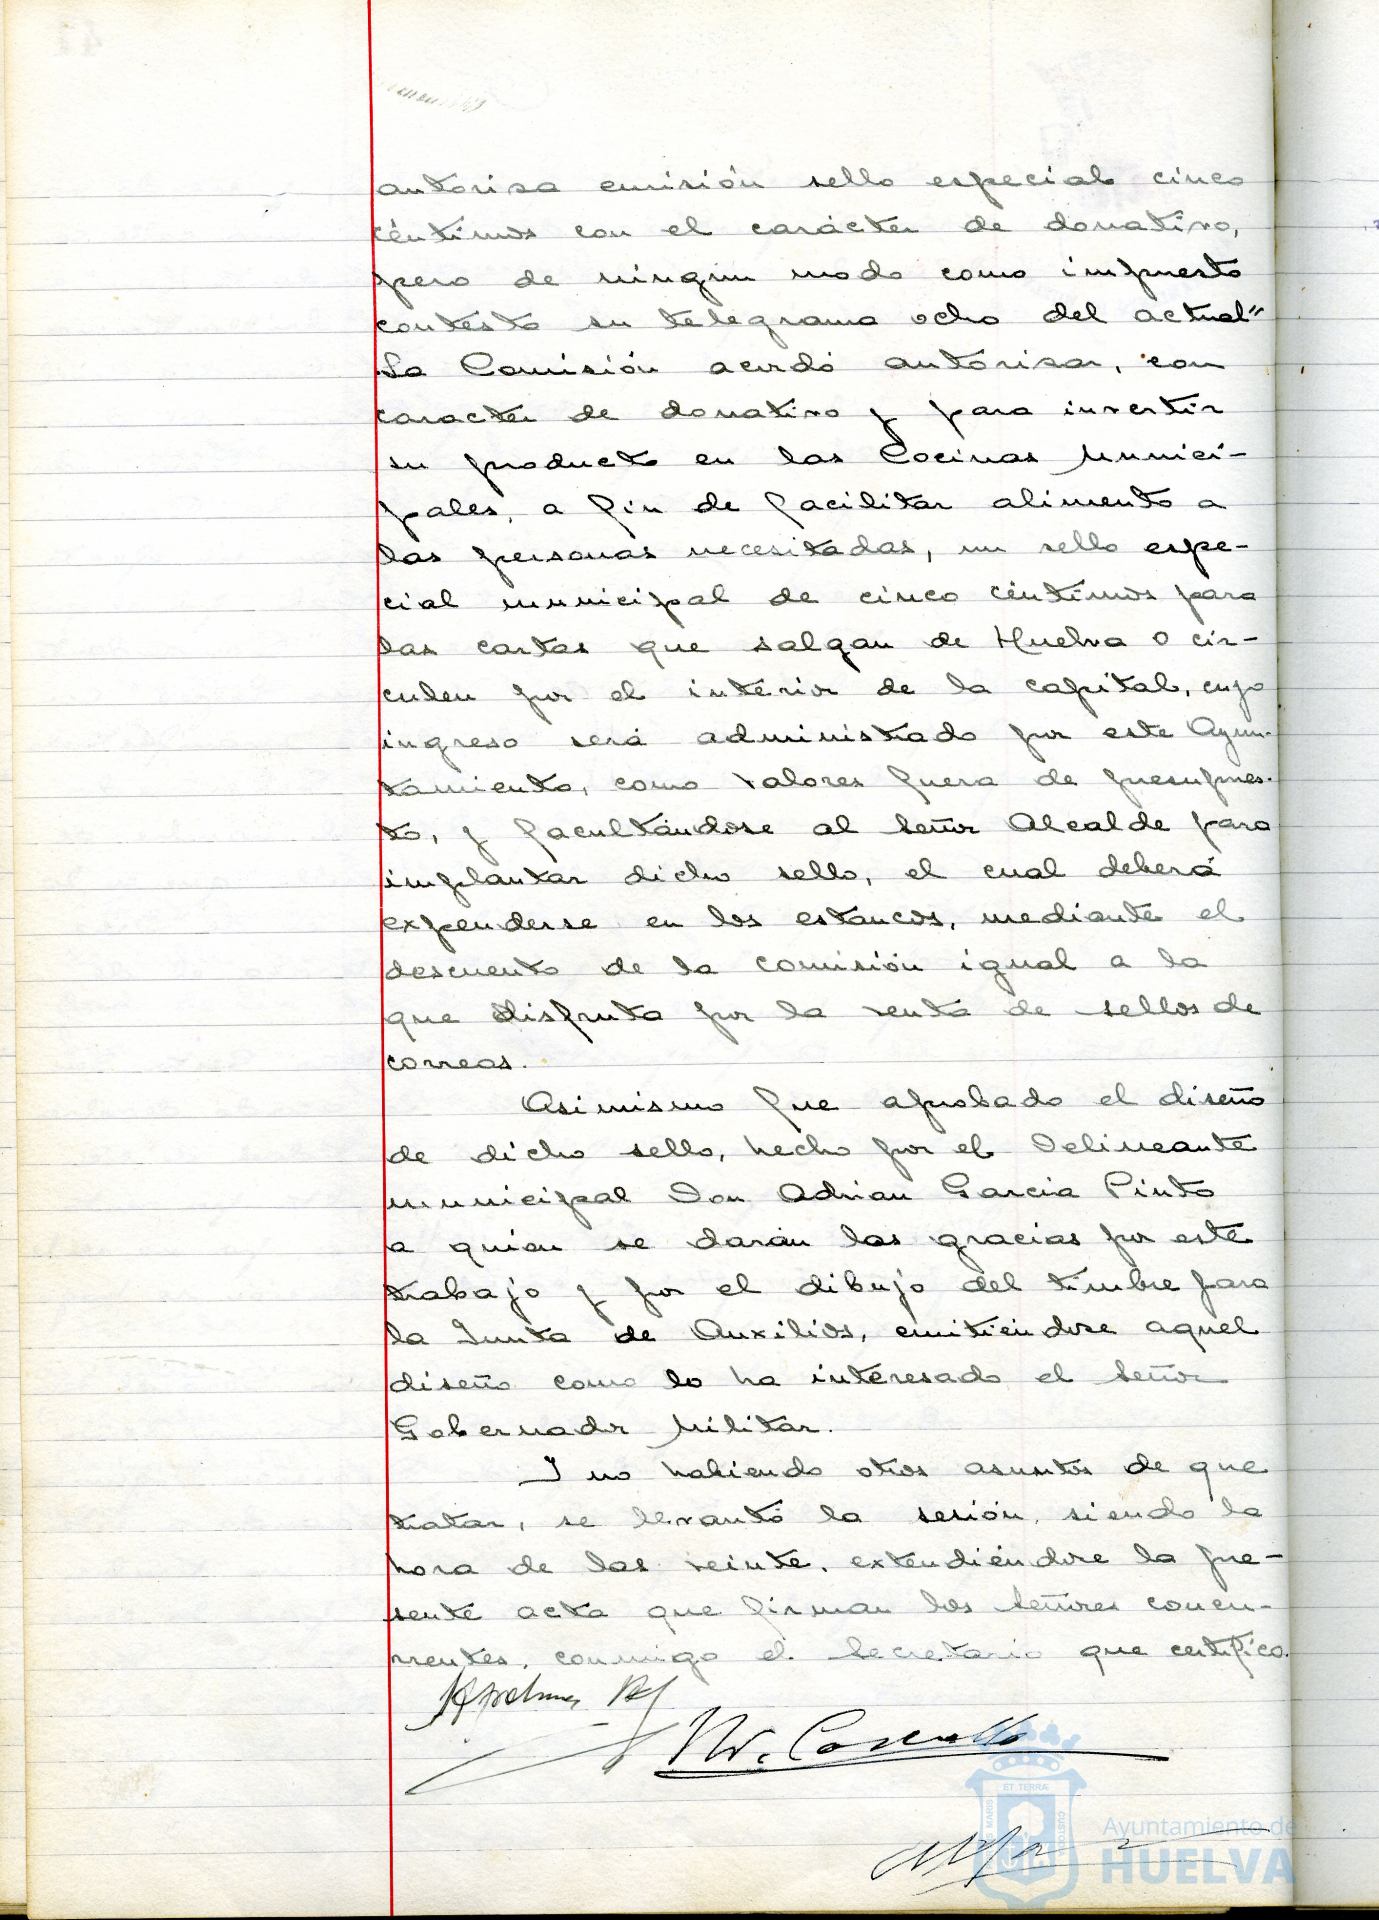 autorisa emisión sello especial cinco
céntimos con el carácter de donativo,
pero de ningún modo como impuesto
contesto su telegrama ocho del actual"
La Comisión acordó autorisar, con
caracter de donativo y para invertir
su producto en las Cocinas Munici-
pales, a fin de facilitar alimento a
las personas necesitadas, un sello espe-
cial municipal de cinco céntimos para
las cartas que salgan de Huelva o cir-
culen por el interior de la capital, cuyo
ingreso será administrado por este Ayun-
tamiento, como valores fuera de presupues-
to, y facultándose al Señor Alcalde para
implantar dicho sello, el cual deberá
expenderse en los estancos, mediante el
descuento de la comisión igual a la
que disfruta por la renta de sellos de
correos.
Asimismo fue aprobado el diseño
de dicho sello, hecho por el Delineante
municipal Don Adrian Garcia Pinto
a quien se darán las gracias por este
trabajo y por el dibujo del timbre para
la Junta de Auxilios, emitiéndose aquel
diseño como lo ha interesado el Señor
Gobernador Militar.
I no habiendo otros asuntos de que
tratar, se levantó la sesión, siendo la
hora de las veinte, extendiéndose la pre-
sente acta que firman los Señores concu-
rrentes, conmigo el Secretario que certifico.
ET TERRÆ
MARIS
CUSTO
Ayuntamiento de
HUELVA